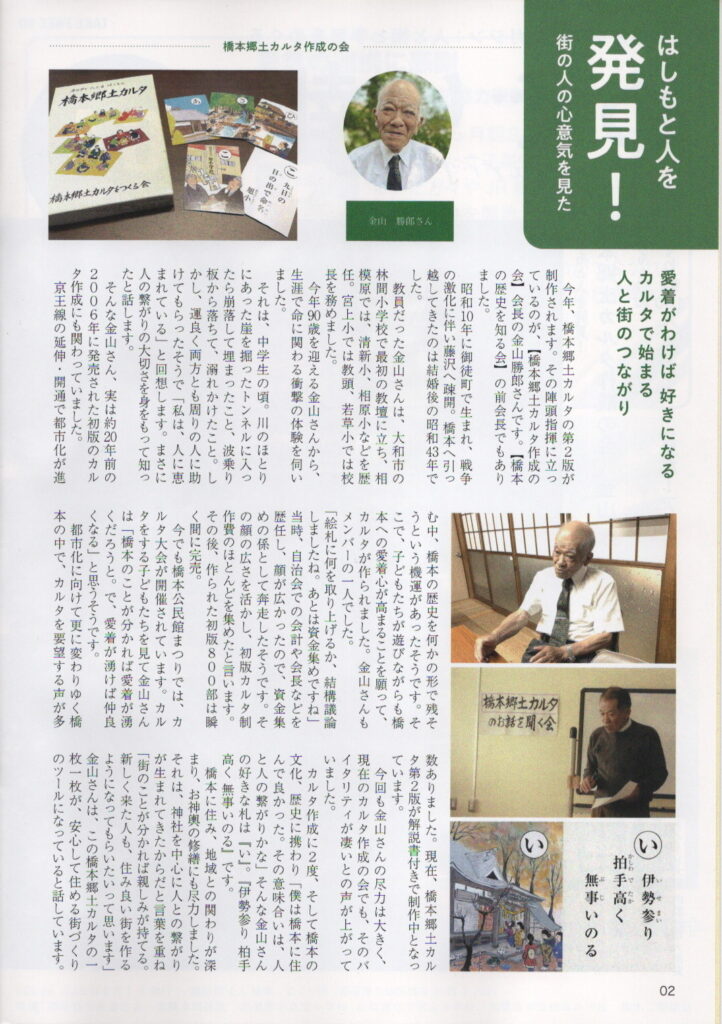 橋本郷土カルタ作成の会
はしもと人を
発見！
街の人の心意気を見た
橋本郷土カルタ
橋本郷土カルタをつくる会
金山　勝郎さん
愛着がわけば 好きになる
カルタで始まる
人と街のつながり
今年、橋本郷土カルタの第２版が
制作されます。その陣頭指揮に立っ
ているのが、【橋本郷土カルタ作成の
会】会長の金山勝郎さんです。【橋本
の歴史を知る会】の前会長でもあり
ました。
昭和10年に御徒町で生まれ、戦争
の激化に伴い藤沢へ疎開。橋本へ引っ
越してきたのは結婚後の昭和43年で
した。
教員だった金山さんは、大和市の
林間小学校で最初の教壇に立ち、相
模原では、清新小、相原小などを歴
任。宮上小では教頭、若草小では校
長を務めました。
今年90歳を迎える金山さんから、
生涯で命に関わる衝撃の体験を伺い
ました。
それは、中学生の頃。川のほとり
にあった崖を掘ったトンネルに入っ
たら崩落して埋まったこと、波乗り
板から落ちて、溺れかけたこと。し
かし、運良く両方とも周りの人に助
けてもらったそうで「私は、人に恵
まれている」と回想します。まさに
人の繋がりの大切さを身をもって知っ
たと話します。
そんな金山さん、実は約20年前の
２００６年に発売された初版のカル
タ作成にも関わっていました。
京王線の延伸・開通で都市化が進
む中、橋本の歴史を何かの形で残そ
うという機運があったそうです。そ
こで、子どもたちが遊びながらも橋
本への愛着心が高まることを願って、
カルタが作られました。金山さんも
メンバーの一人でした。
「絵札に何を取り上げるか、結構議論
しましたね。あとは資金集めですね」
当時、自治会での会計や会長などを
歴任し、顔が広かったので、資金集
めの係として奔走したそうです。そ
の顔の広さを活かし、初版カルタ制
作費のほとんどを集めたと言います。
その後、作られた初版８００部は瞬
く間に完売。
今でも橋本公民館まつりでは、カ
ルタ大会が開催されています。カル
タをする子どもたちを見て金山さん
は「橋本のことが分かれば愛着が湧
くだろうと。で、愛着が湧けば仲良
くなる」と思うそうです。
都市化に向けて更に変わりゆく橋
本の中で、カルタを要望する声が多
数ありました。現在、橋本郷土カル
タ第２版が解説書付きで制作中となっ
ています。
今回も金山さんの尽力は大きく、
現在のカルタ作成の会でも、そのバ
イタリティが凄いとの声が上がって
いました。
カルタ作成に２度、そして橋本の
文化、歴史に携わり「僕は橋本に住
んで良かった。その意味合いは、人
と人の繋がりかな」そんな金山さん
の好きな札は『い』。『伊勢参り 拍手
高く 無事いのる』です。
橋本に住み、地域との関わりが深
まり、お神輿の修繕にも尽力しました。
それは、神社を中心に人との繋がり
が生まれてきたからだと言葉を重ね
「街のことが分かれば親しみが持てる。
新しく来た人も、住み良い街を作る
ようになってもらいたいって思います」
金山さんは、この橋本郷土カルタの一
枚一枚が、安心して住める街づくり
のツールになっていると話しています。
橋本郷土カルタ
のお話を聞く会
い
い
伊勢参り
拍手高く
無事いのる
02